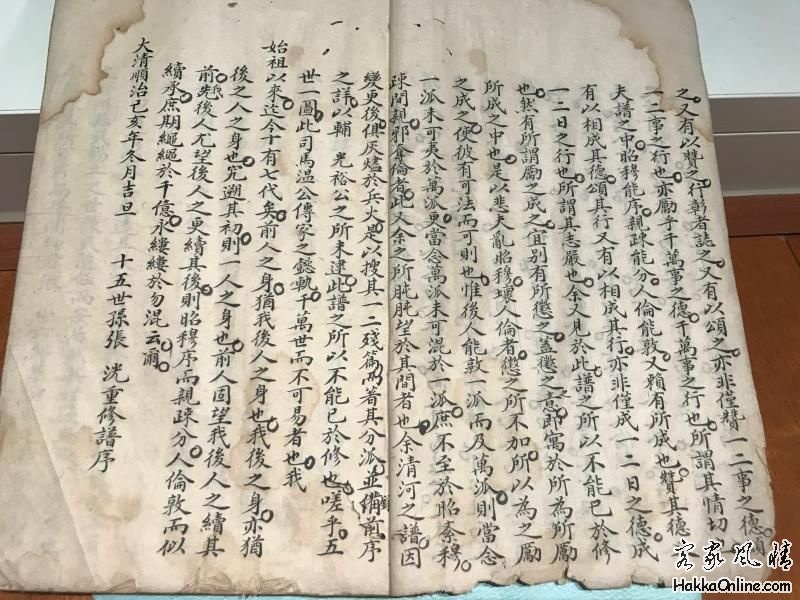 之又有以贊之行彰者誌之又有以頌之亦非僅贊一二事之德頌
一二事之行也亦勵乎千萬事之德千萬事之行也所謂其情切
夫譜之中昭穆能序親疎能分人倫能敦又賴有所成也贊其德
有以相成其德頌其行又有以相成其行亦非僅成一二日之德成
一二日之行也所謂其志嚴也余又見於此譜之所以不能已於修
也然有所謂勵之成之宜別有所懲之蓋懲之意即寓於所為所勵
所成之中也是以悲夫亂昭穆壞人倫者懲之所不加所以為之勵
之成之使彼有可法而可則也惟後人能敦一派而及萬派則當念
一派未可夷於萬派更當念萬派未可混於一派庶不至於昭紊穆
疎間親邪奪倫者此又余之所肫肫望於其間者也余清河之譜因
變更後俱灰燼於兵火與以搜其一二殘篇而著其分派並備錄前序
之詳以輔 光裕公之所未逮此譜之所以不能已於修也嗟乎五
世一圖此司馬溫公傳家之懿軌千萬世而不可易者也我
始祖以來迄今十有七代矣前人之身猶我後人之身也我後之身亦猶
後之人之身也究遡其初則一人之身也前人固望我後人之續其
前我後人尤望後人之更續其後則昭穆序而親疎分人倫敦而似
續承庶期繩繩於千億永縷縷於勿混云爾
大清順治己亥年冬月吉旦 十五世孫張 洸重修譜序
客家風情
HakkaOnline.com